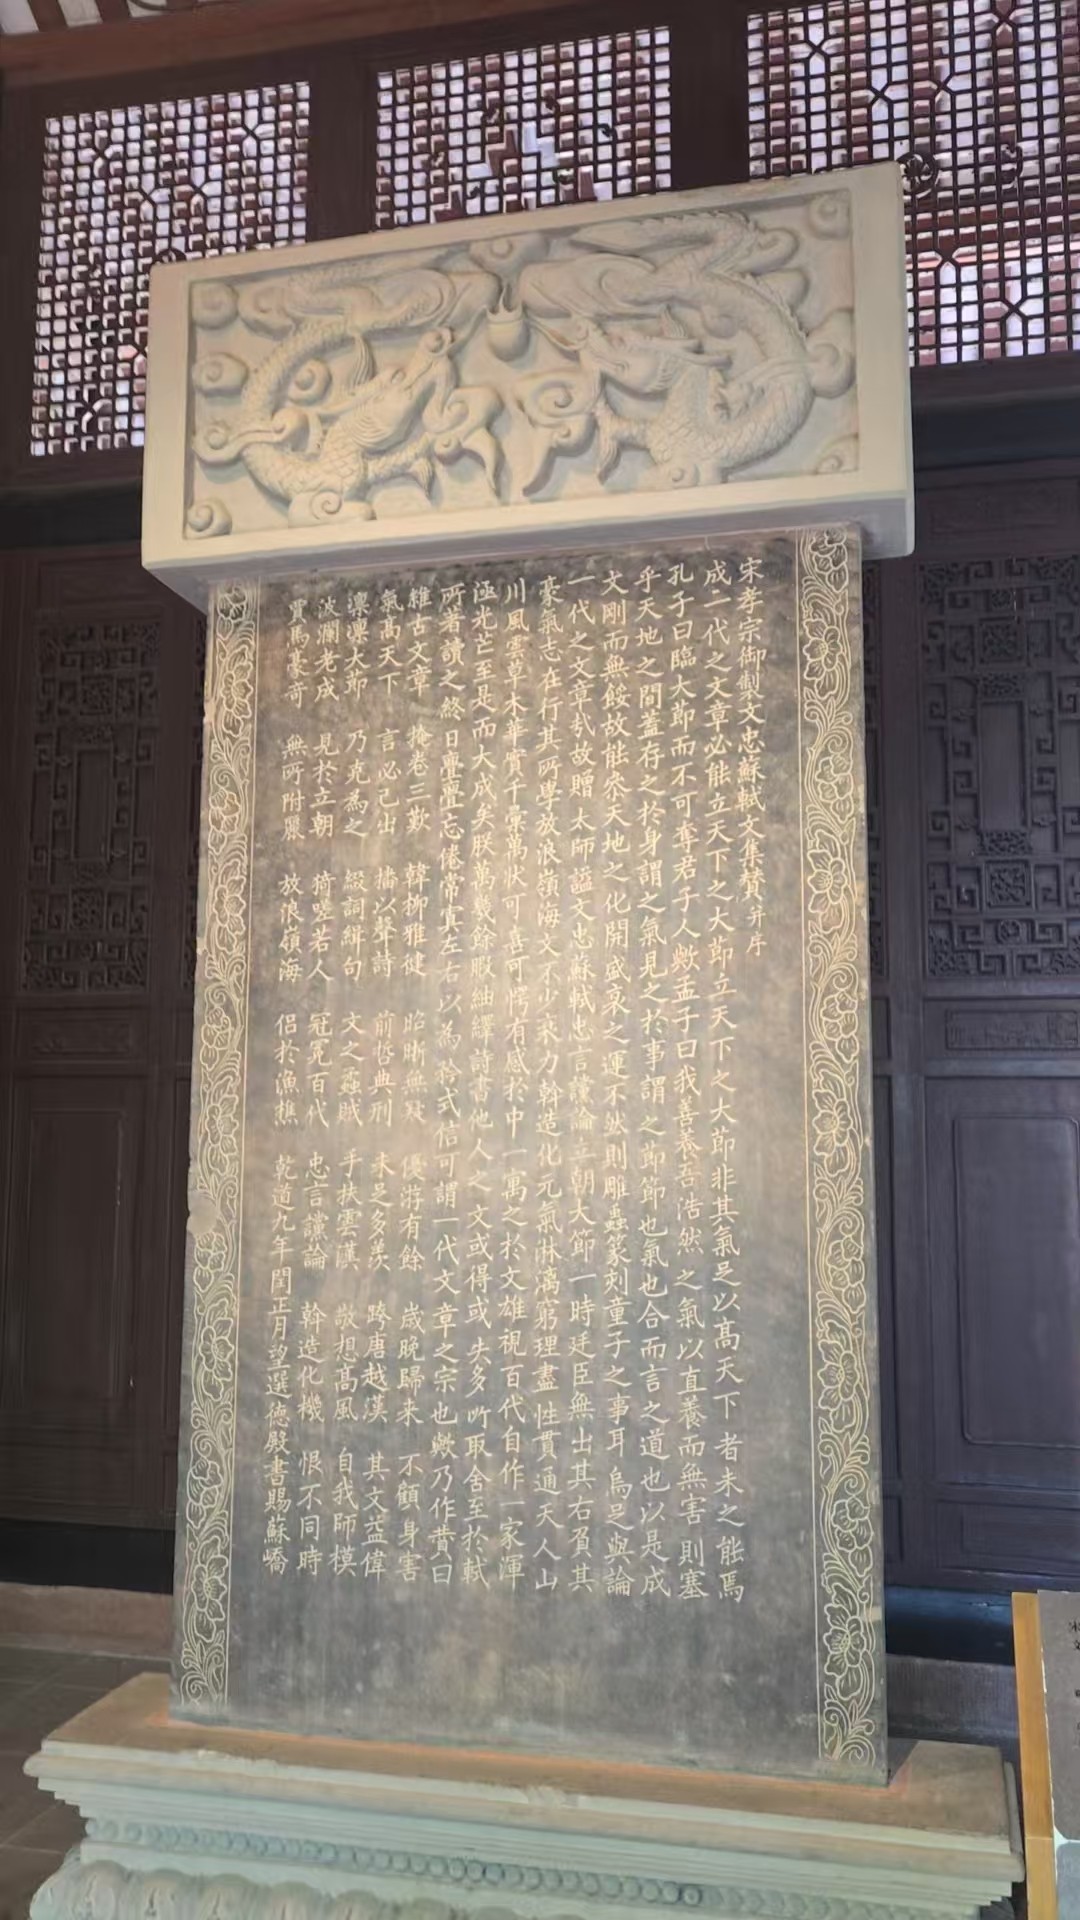 宋孝宗御製文忠蘇軾文集贊并序
成一代之文章必能立天下之大節立天下之大節非其氣足以高天下者未之能焉
孔子曰臨大節而不可奪君子人歟孟子曰我善養吾浩然之氣以直養而無害則塞
乎天地之間蓋存之於身謂之氣見之於事謂之節節也氣也合而言之道也以是成
文剛而無餒故能參天地之化開盛衰之運不然則雕蟲篆刻童子之事耳烏足與論
一代之文章哉故贈太師謚文忠蘇軾忠言讜論立朝大節一時廷臣無出其右負其
豪氣志在行其所學放浪嶺海文不少衰力斡造化元氣淋漓窮理盡性貫通天人山
川風雲草木華實千彙萬狀可喜可愕有感於中一寓之於文雄視百代自作一家渾
涵光芒至是而大成矣朕萬幾餘暇紬繹詩書他人之文或得或失多所取舍至於軾
所著讀之終日亹亹忘倦常寘左右以為矜式信可謂一代文章之宗也歟乃作贊曰
維古文章 言必己出 綴詞緝句 文之蟊賊 手扶雲漢 斡造化機
氣高天下 乃克為之 猗嗟若人 冠冕百代 忠言讜論 不顧身害
凜凜大節 見於立朝 放浪嶺海 侶於漁樵 歲晚歸來 其文益偉
波瀾老成 無所附麗 昭晰無疑 優游有餘 跨唐越漢 自我師模
賈馬豪奇 韓柳雅健 前哲典刑 未足多羨 敬想高風 恨不同時
掩卷三歎 播以聲詩 乾道九年閏正月望選德殿書賜蘇嶠